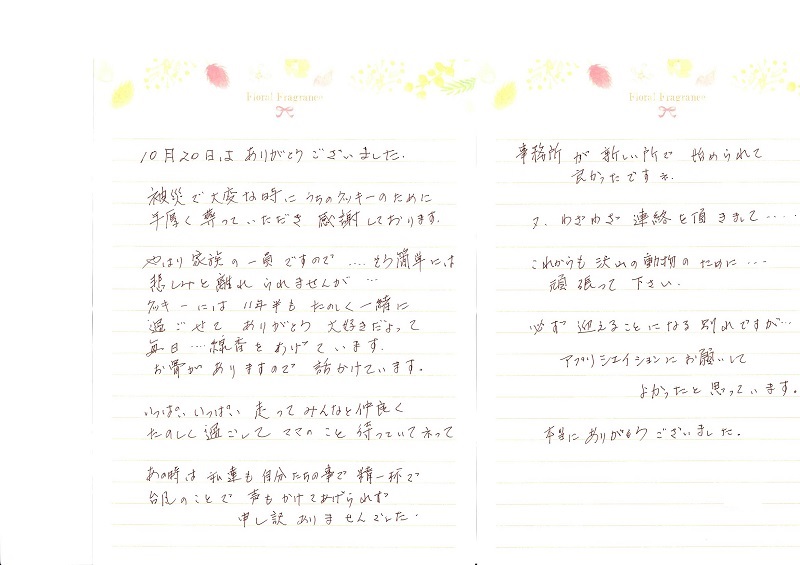 Floral Fragrance
10月20日は ありがとうございました.
被災で大変な時に うちのクッキーのために
手厚く葬っていただき 感謝しております.
やはり 家族の一員ですので …. そう簡単には
悲しみと離れられませんが …
クッキーには 11年半も たのしく一緒に
過ごせて ありがとう 大好きだよって
毎日 … 線香を あげています.
お骨が ありますので 話かけています.
いっぱい いっぱい 走って みんなと仲良く
たのしく 過ごして ママのこと 待っていてネって
あの時は 私達も 自分たちの事で 精一杯で
台風のことで 声もかけてあげられず
申し訳ありませんでした.
Floral Fragrance
事務所が 新しい所で 始められて
良かったです
又、わざわざ 連絡を頂きまして ‥‥
これからも 沢山の動物の ために …
頑張って 下さい.
必ず 迎えることになる 別れですが…
アプリシエイションに お願いして
よかったと思っています.
本当に ありがとうございました.